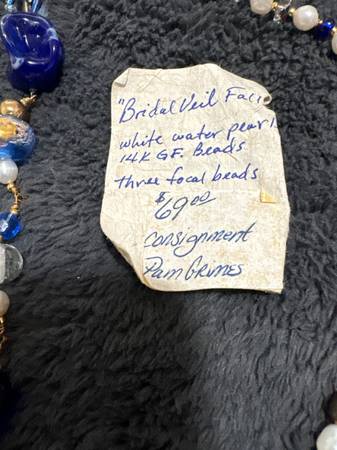 "Bridal Veil Fall
white water pearl
14K G.F. Beads
three focal beads
$69.00
consignment
Pam Grimes